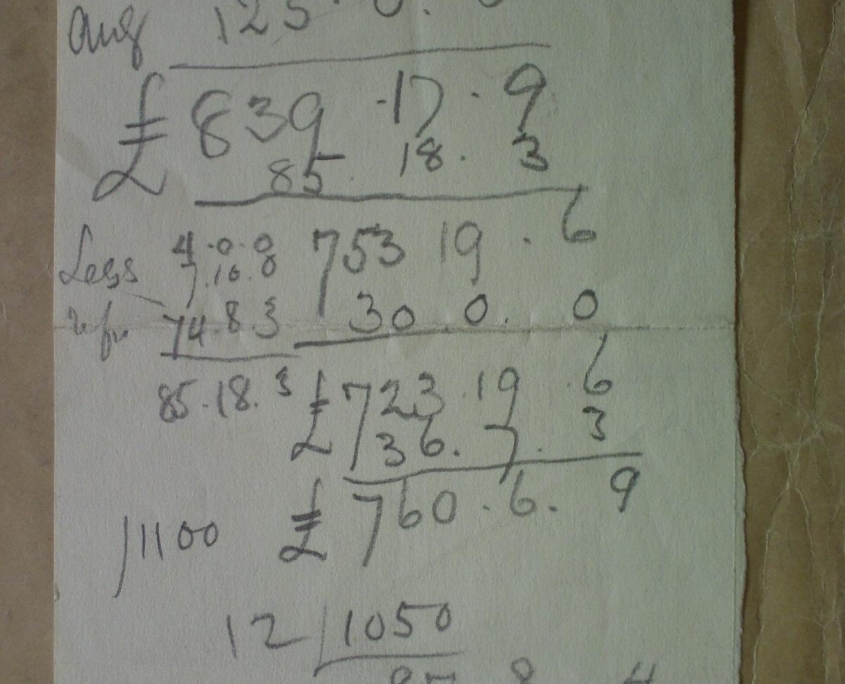 Aug 125 . 0 . 0
£ 839 . 17 . 9
85 18 . 3
753 19 . 6
Less 4 . 0 . 0
7 . 10 . 0
74 . 8 3 30 . 0 . 0
85 . 18 . 3 £ 723 . 19 6
36 . 7 . 3
£ 760 . 6 . 9
/1100
12 / 1050
87 8 4